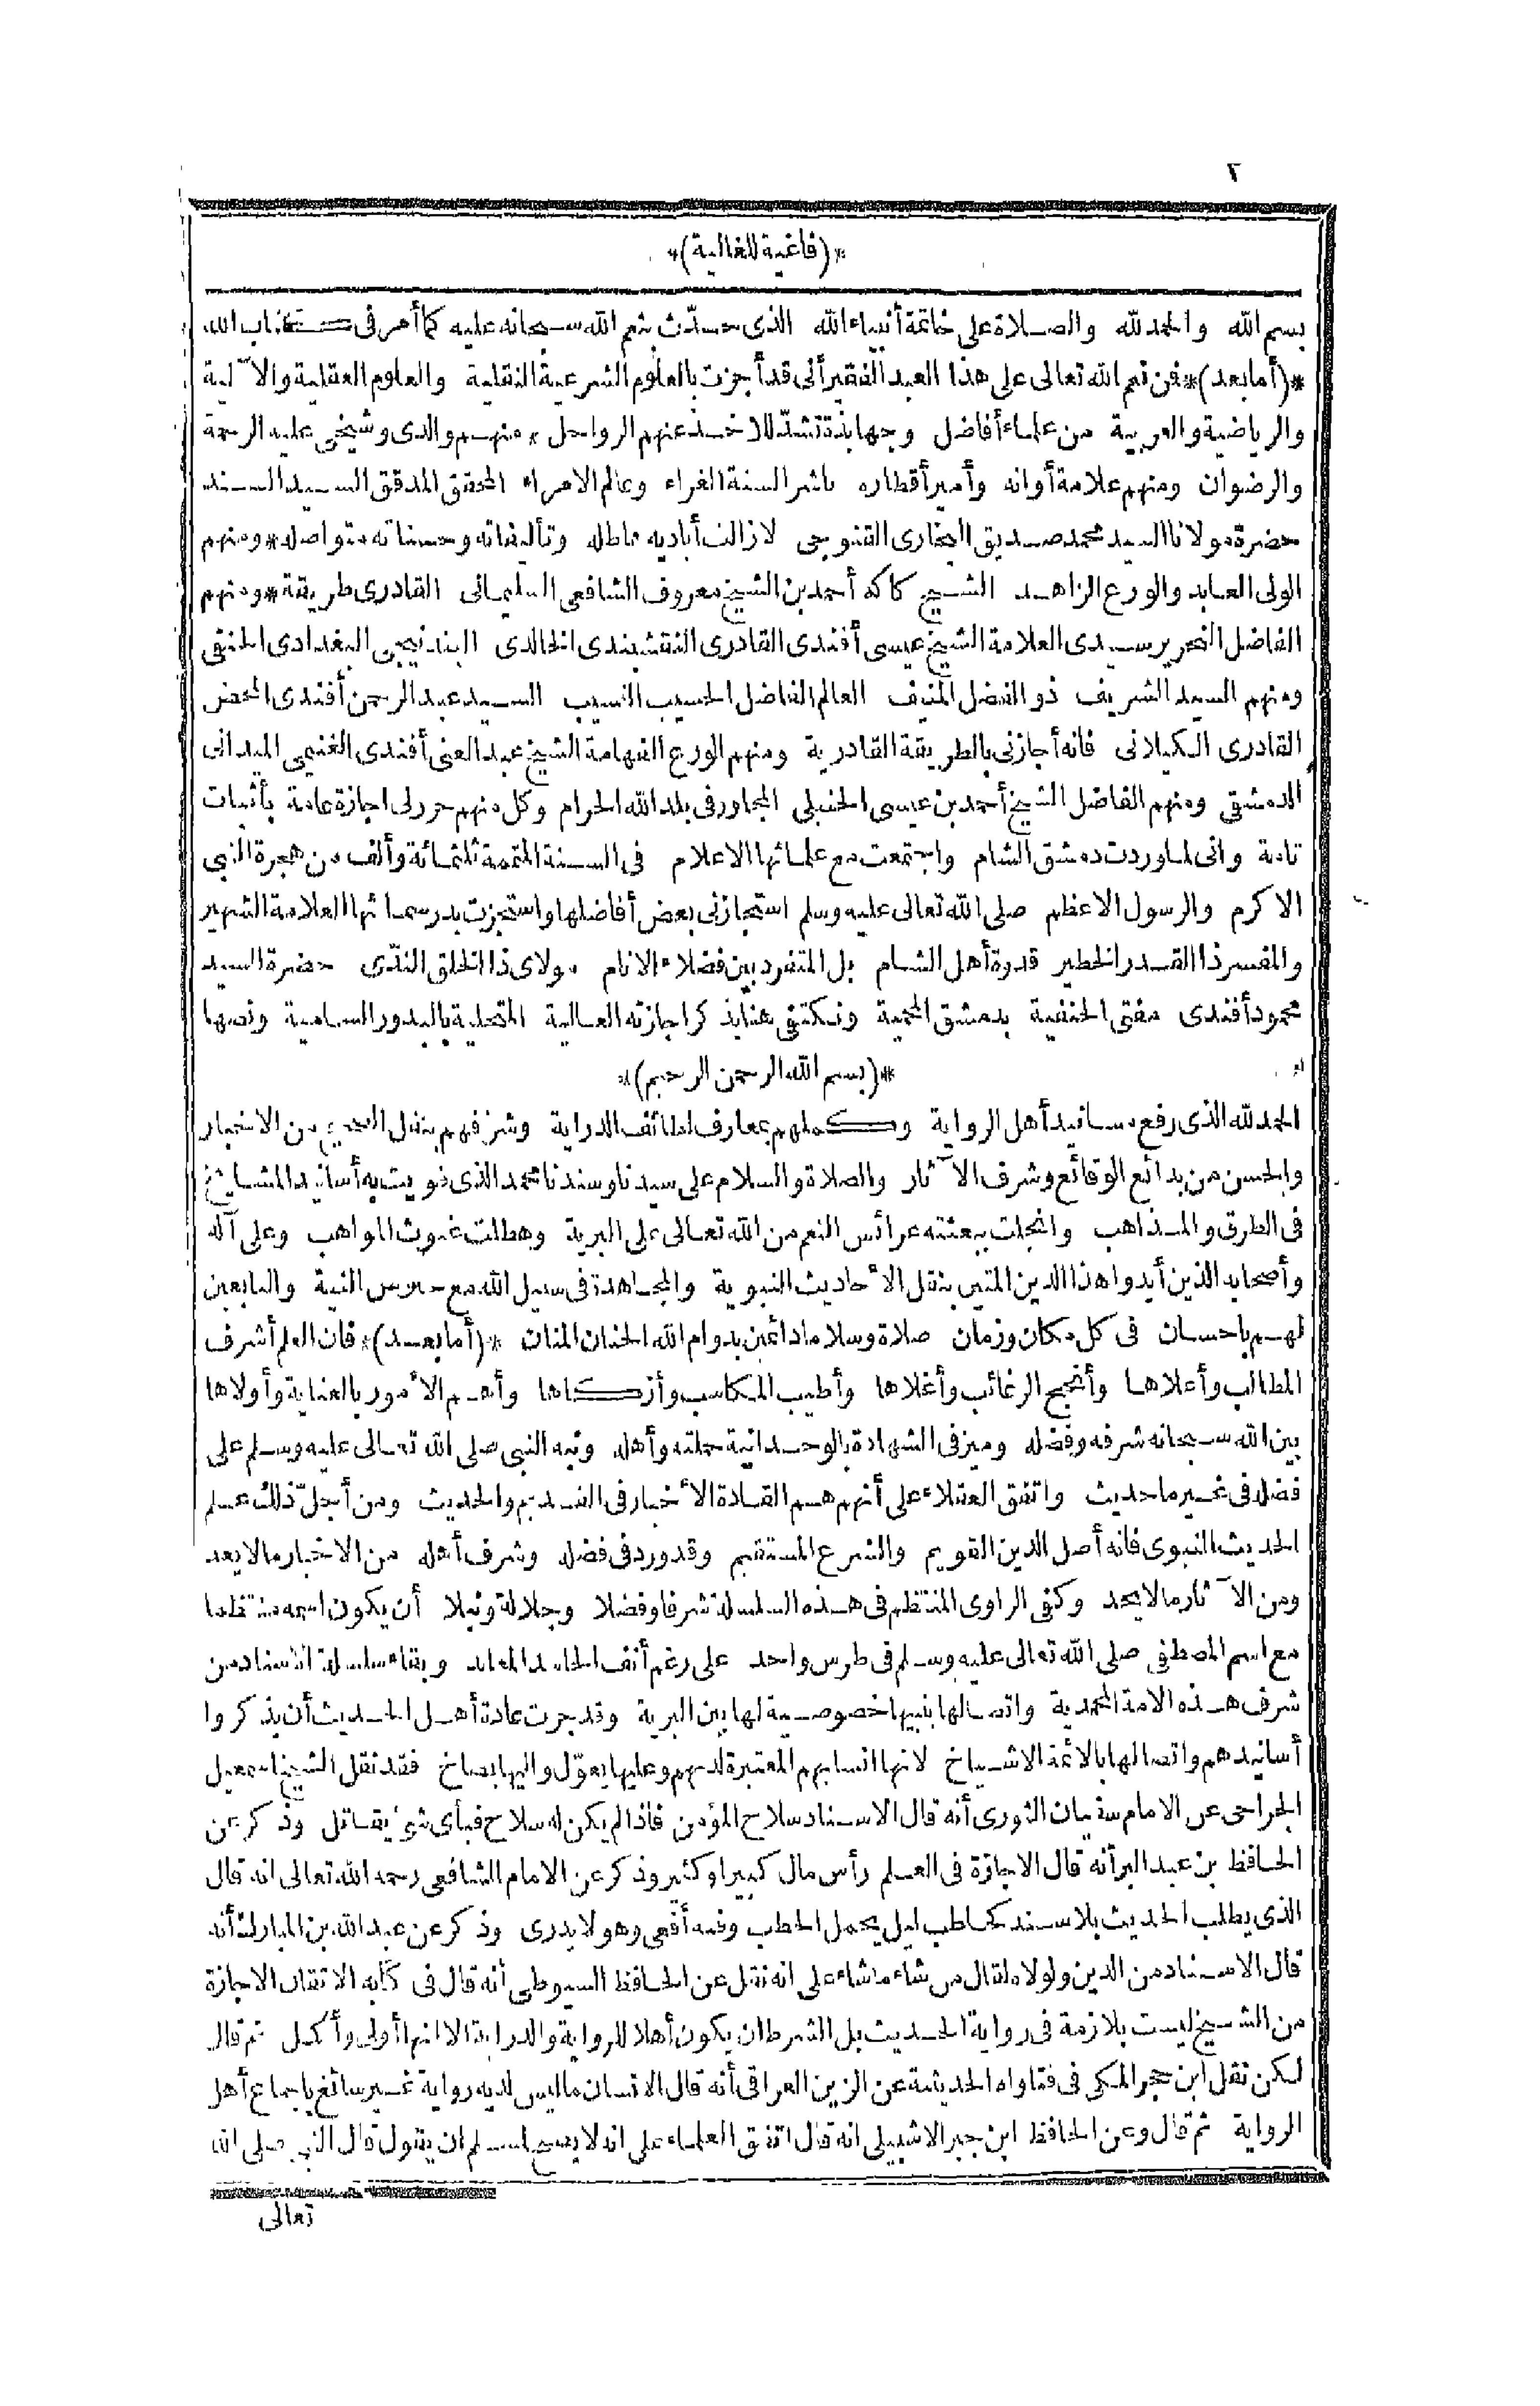 ٢
*(فاغية للغالية)*
بسم الله والحمد لله والصلاة على خاتمة أنبياء الله الذى حدّث بنعم الله سبحانه عليه كما أمر فى كتاب الله
*(أما بعد)* فمن نعم الله تعالى على هذا العبد الفقير أنى قد أجزت بالعلوم الشرعية النقلية والعلوم العقلية والآلية
والرياضية والعربية من علماء أفاضل وجهابذة تشدّ للأخذ عنهم الرواحل * منهم والدى وشيخى عليه الرحمة
والرضوان ومنهم علامة أوانه وأمير أقطاره ناشر السنة الغراء وعالم الامراء المحقق المدقق السيد السند
حضرة مولانا السيد محمد صديق البخارى القنوجى لا زالت أياديه هاطله وتأليفاته وحسناته متواصله * ومنهم
الولى العابد والورع الزاهد الشيخ كاكه أحمد بن الشيخ معروف الشافعى السليمانى القادرى طريقة * ومنهم
الفاضل النحرير سيدى العلامة الشيخ عيسى أفندى القادرى النقشبندى الخالدى البندنيجى البغدادى الحنفى
ومنهم السيد الشريف ذو الفضل المنيف العالم الفاضل الحسيب النسيب السيد عبد الرحمن أفندى المحض
القادرى الكيلانى فانه أجازنى بالطريقة القادرية ومنهم الورع الفهامة الشيخ عبد الغنى أفندى الغنيمى الميدانى
الدمشقى ومنهم الفاضل الشيخ أحمد بن عيسى الحنبلى المجاور فى بلد الله الحرام وكل منهم حرر لى اجازة عامة بأثبات
تامة وانى لما وردت دمشق الشام واجتمعت مع علمائها الاعلام فى السنة المتممة ثلثمائة وألف من هجرة النبى
الاكرم والرسول الاعظم صلى الله تعالى عليه وسلم استجازنى بعض أفاضلها واستجزت بدر سمائها العلامة الشهير
والمفسر ذا القدر الخطير قدوة أهل الشام بل المتفرد بين فضلاء الانام مولاى ذا الخلق الندّى حضرة السيد
محمود أفندى مفتى الحنفية بدمشق المحمية ونكتفى هنا بذكر اجازته العالية المتحلية بالبدور السامية ونصها
*(بسم الله الرحمن الرحيم)*
الحمد لله الذى رفع مسانيد أهل الرواية وكملهم بمعارف لطائف الدراية وشرفهم بنقل الصحيح من الاخبار
والحسن من بدائع الوقائع وشرف الآثار والصلاة والسلام على سيدنا وسندنا محمد الذى قويت به أسانيد المشايخ
فى الطرق والمذاهب وانجلت ببعثته عرائس النعم من الله تعالى على البرية وهطلت غيوث المواهب وعلى آله
وأصحابه الذين أيدوا هذا الدين المتين بنقل الأحاديث النبوية والمجاهدة فى سبيل الله مع خلوص النية والتابعين
لهم باحسان فى كل مكان وزمان صلاة وسلاما دائمين بدوام الله الحنان المنان *(أما بعد)* فان العلم أشرف
المطالب وأعلاها وأنجح الرغائب وأغلاها وأطيب المكاسب وأزكاها وأهم الأمور بالعناية وأولاها
بين الله سبحانه شرفه وفضله وميز فى الشهادة بالوحدانية حملته وأهله ونبه النبى صلى الله تعالى عليه وسلم على
فضله فى غير ما حديث واتفق العقلاء على أنهم هم القادة الأخيار فى القديم والحديث ومن أجلّ ذلك علم
الحديث النبوى فانه أصل الدين القويم والشرع المستقيم وقد ورد فى فضله وشرف أهله من الاخبار ما لا يعد
ومن الآثار ما لا يحد وكفى الراوى المنتظم فى هذه السلسلة شرفا وفضلا وجلالة ونبلا أن يكون اسمه منتظما
مع اسم المصطفى صلى الله تعالى عليه وسلم فى طرس واحد على رغم أنف الحاسد المعاند وبقاء سلسلة الاسناد من
شرف هذه الامة المحمدية واتصالها بنبيها خصوصية لها بين البرية وقد جرت عادة أهل الحديث أن يذكروا
أسانيدهم واتصالها بالائمة الاشياخ لانها انسابهم المعتبرة لديهم وعليها يعوّل واليها يصاخ فقد نقل الشيخ اسمعيل
الجراحى عن الامام سفيان الثورى أنه قال الاسناد سلاح المؤمن فاذا لم يكن له سلاح فبأى شئ يقاتل وذكر عن
الحافظ بن عبد البر أنه قال الاجازة فى العلم رأس مال كبير أو كثير وذكر عن الامام الشافعى رحمه الله تعالى انه قال
الذى يطلب الحديث بلا سند كحاطب ليل يحمل الحطب وفيه أفعى وهو لا يدرى وذكر عن عبد الله بن المبارك أنه
قال الاسناد من الدين ولولاه لقال من شاء ما شاء على انه نقل عن الحافظ السيوطى أنه قال فى كتابه الاتقان الاجازة
من الشيخ ليست بلازمة فى رواية الحديث بل الشرط ان يكون أهلا للرواية والدراية الا انها أولى وأكمل ثم قال
لكن نقل ابن حجر المكى فى فتاواه الحديثية عن الزين العراقى أنه قال الانسان ما ليس لديه رواية غير سائغ باجماع أهل
الرواية ثم قال وعن الحافظ ابن جبر الاشبيلى انه قال اتفق العلماء على انه لا يصح لمسلم ان يقول قال النبى صلى الله
تعالى